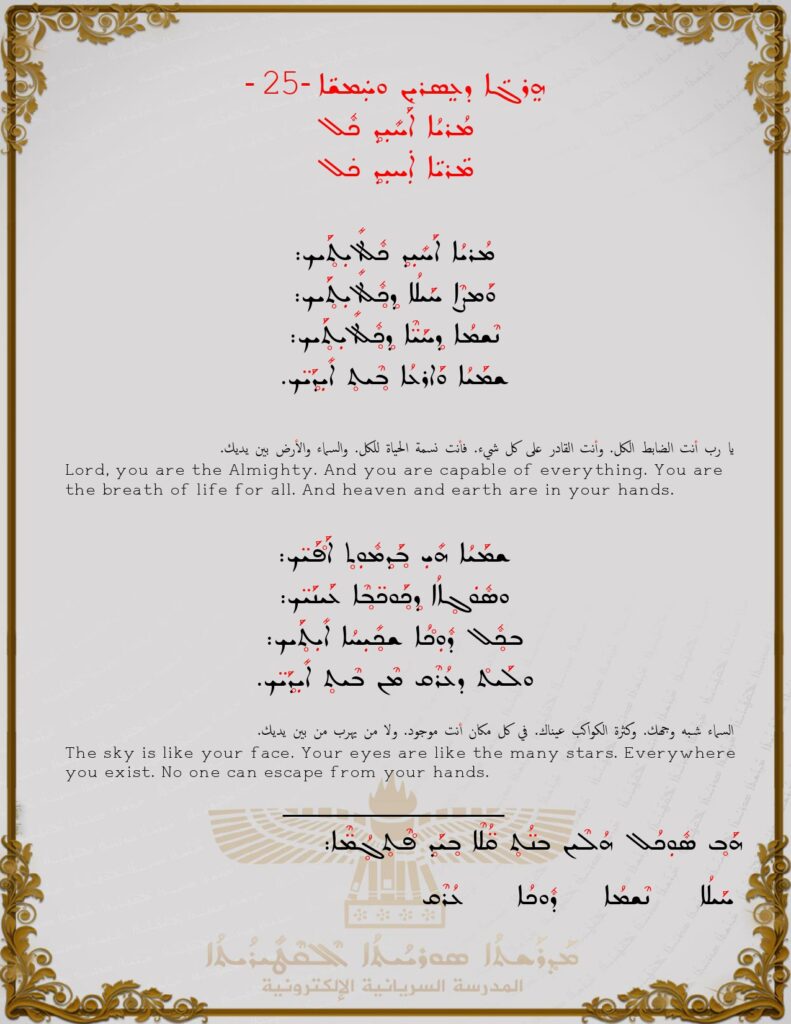 ܗܘܪ̈ܓܐ ܕܥܣܪܝܢ ܘܚܡܫܐ -25-
ܡܪܝܐ ܐܚܝܕ ܟܠ
ܡܪܝܐ ܐܚܝܕ ܟܠ
ܡܪܝܐ ܐܚܝܕ ܟܠܐܝܬܝܟ:
ܘܡܨܐ ܚܝܠܐ ܕܟܠܐܝܬܝܟ:
ܢܫܡܐ ܕܚܝ̈ܐ ܕܟܠܐܝܬܝܟ:
ܫܡܝܐ ܘܐܪܥܐ ܒܝܬ ܐܝܕܝ̈ܟ.
يا رب أنت الضابط الكل. وأنت القادر على كل شيء. فأنت نسمة الحياة للكل. والسماء والأرض بين يديك.
Lord, you are the Almighty. And you are capable of everything. You are
the breath of life for all. And heaven and earth are in your hands.
ܫܡܝܐ ܗܝ ܒܕܡܘܬ ܐܦܝ̈ܟ:
ܘܣܘܓܐܐ ܕܟܘܟܒ̈ܐ ܥܝܢܝ̈ܟ:
ܒܟܠ ܕܘܟܐ ܫܟܝܚܐ ܐܝܬܝܟ:
ܘܠܝܬ ܕܥܪܩ ܡܢ ܒܝܬ ܐܝܕܝ̈ܟ.
السماء شبه وجهك. وكثرة الكواكب عيناك. في كل مكان أنت موجود. ولا من يهرب من بين يديك.
The sky is like your face. Your eyes are like the many stars. Everywhere
you exist. No one can escape from your hands.
ܗܒ ܣܘܟܠ ܗܠܝܢ ܒܢ̈ܬ ܩܠܐ ܒܝܕ ܦܬܓܡ̈ܐ:
ܚܝܠܐ ܢܫܡܐ ܕܘܟܐ ܥܪܩ
ܡܕܪܫܬܐ ܣܘܪܝܝܬܐ
المدرسة السريانية الإلكترونية